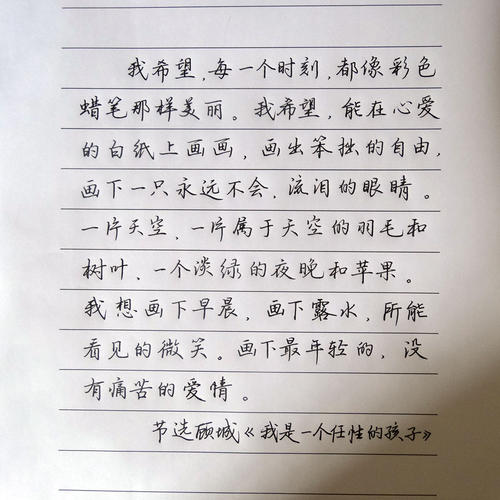 我希望,每一个时刻,都像彩色
蜡笔那样美丽。我希望,能在心爱
的白纸上画画,画出笨拙的自由,
画下一只永远不会、流泪的眼睛。
一片天空、一片属于天空的羽毛和
树叶、一个淡绿的夜晚和苹果。
我想画下早晨,画下露水,所能
看见的微笑。画下最年轻的,没
有痛苦的爱情。
节选顾城《我是一个任性的孩子》